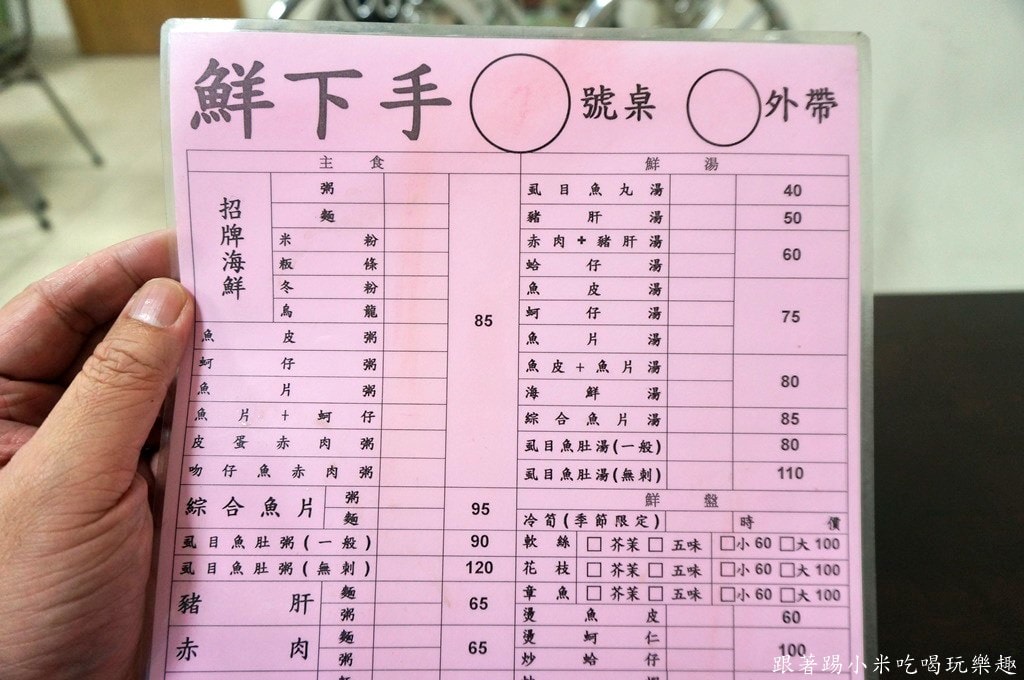 鮮下手 號桌 外帶
主食
招牌海鮮
粥
麵
米粉
粄條
冬粉
烏龍
魚皮粥
蚵仔粥
魚片粥
魚片+蚵仔
皮蛋赤肉粥
吻仔魚赤肉粥
85
綜合魚片 粥 95
麵
虱目魚肚粥(一般) 90
虱目魚肚粥(無刺) 120
豬肝 麵 65
粥
赤肉 麵 65
粥
鮮湯
虱目魚丸湯 40
豬肝湯 50
赤肉+豬肝湯 60
蛤仔湯
魚皮湯
蚵仔湯 75
魚片湯
魚皮+魚片湯 80
海鮮湯
綜合魚片湯 85
虱目魚肚湯(一般) 80
虱目魚肚湯(無刺) 110
鮮盤
冷筍(季節限定) 時價
軟絲 □ 芥茉 □ 五味 □小 60 □大 100
花枝 □ 芥茉 □ 五味 □小 60 □大 100
章魚 □ 芥茉 □ 五味 □小 60 □大 100
燙魚皮 60
燙蚵仁 100
炒蛤仔
跟著踢小米吃喝玩樂趣